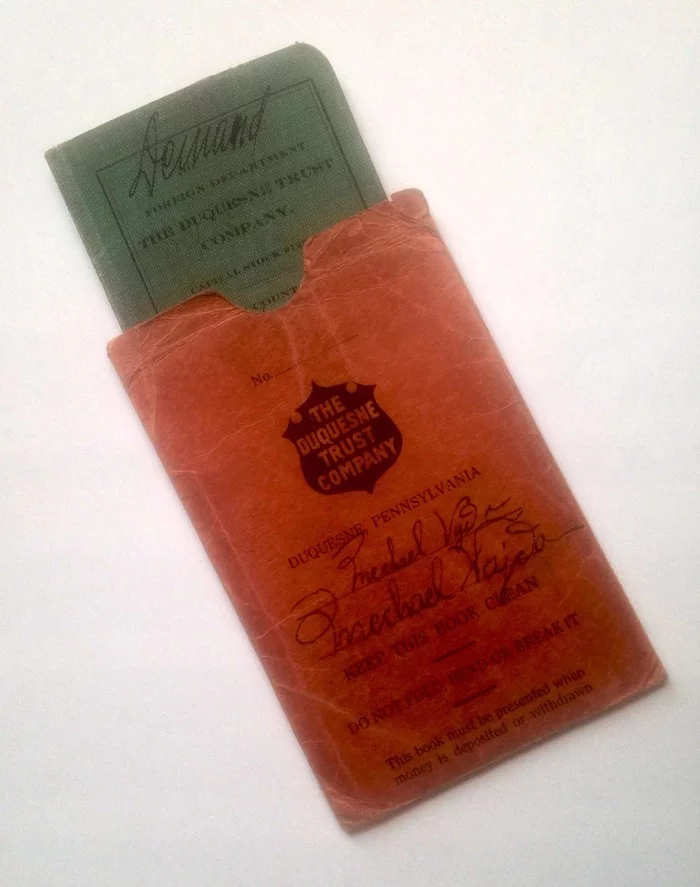 Demand
FOREIGN DEPARTMENT
THE DUQUESNE TRUST
COMPANY.
CAPITAL STOCK
COUNT
No.
THE
DUQUESNE
TRUST
COMPANY
DUQUESNE, PENNSYLVANIA
Michael
Michael Vajda
KEEP THIS BOOK CLEAN
DO NOT FOLD BEND OR BREAK IT
This book must be presented when
money is deposited or withdrawn